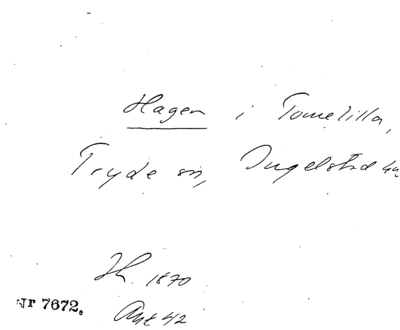 Hagen i Tomelilla,
Tryde sn, Ingelstad hd
Jh. 1870
Nr 7672. Ant 42